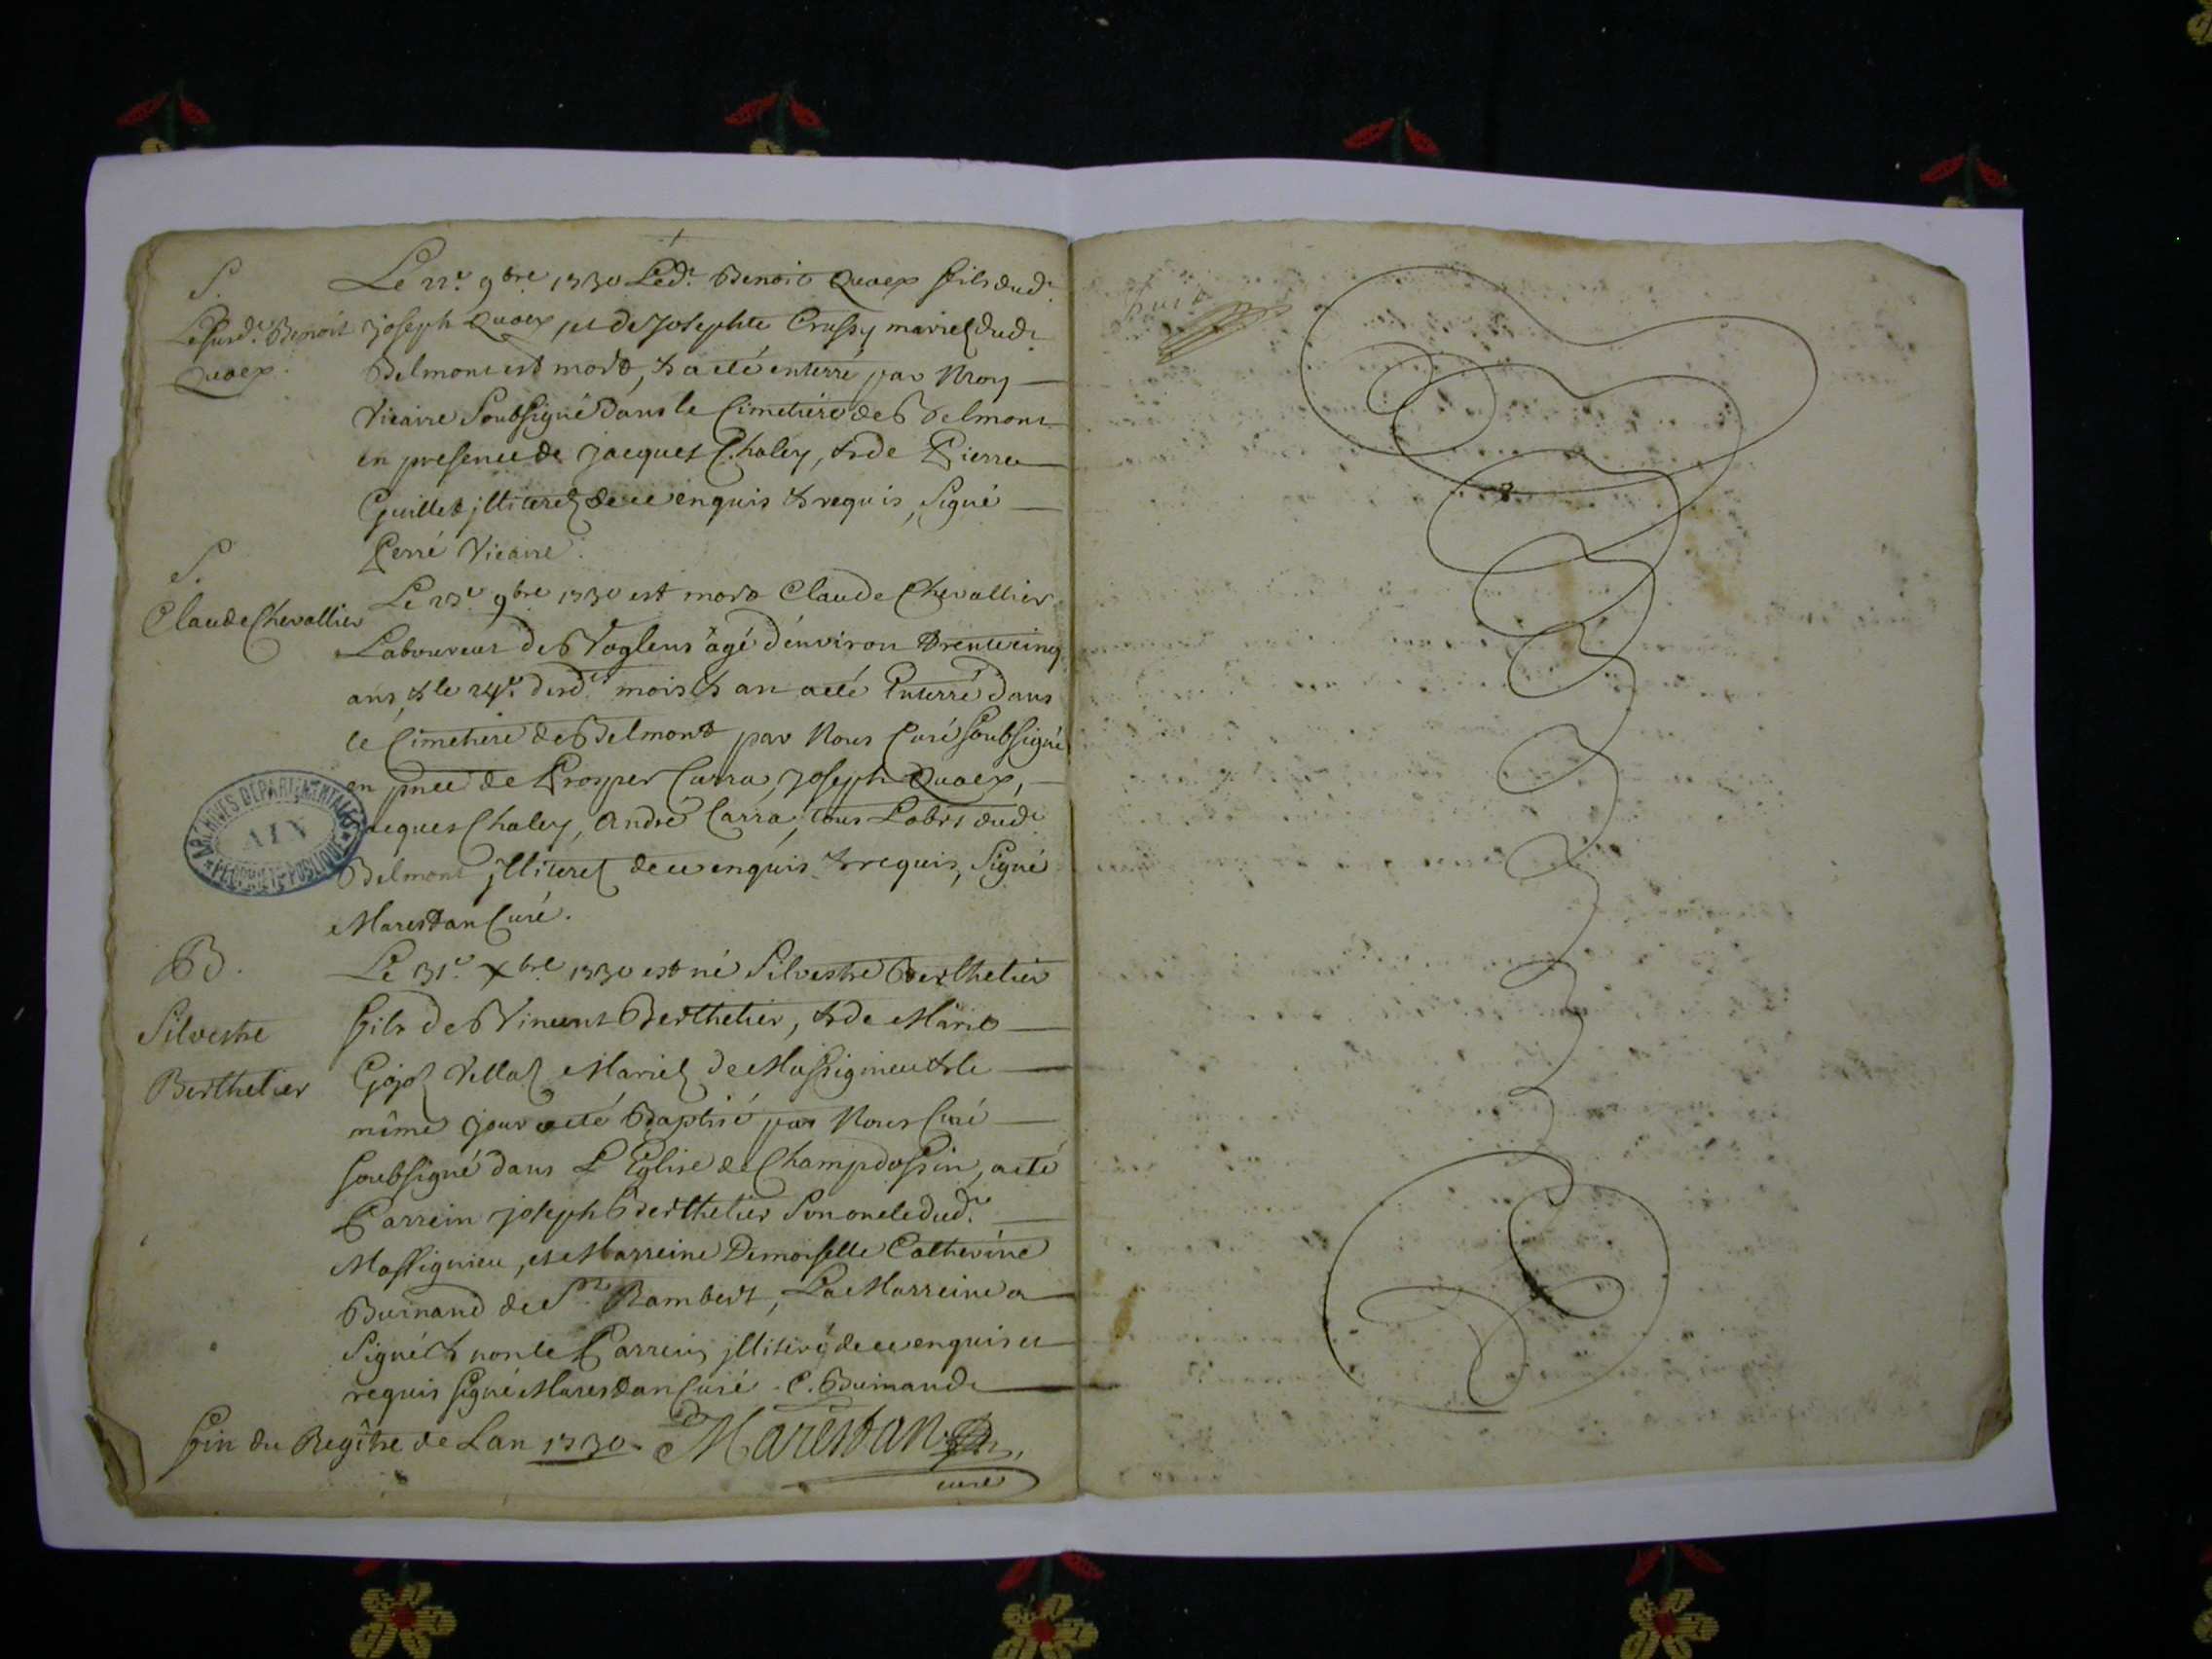 S.
Le susd.t Benoit
Quaex.
Le 22.e 9bre 1730 Led.t Benoit Quaex fils dud.t
joseph Quaex, et de Josephte Crussy mariez dud.t
Belmont est mort, & a eté enterré par Moy
Vicaire Soubsigné Dans le Cimetière de Belmont
en presence de Jacques Chaley, & de Pierre
Guillet jlliterez de ce enquis & requis, Signé
Perré Vicaire.
S.
Claude Chevallier
Le 23.e 9bre 1730 est mort Claude Chevallier
Laboureur de Voglens âgé d'environ Trentecinq
ans, & le 24.e desd.ts mois & an a eté Enterré dans
le Cimetiere de Belmont par Nous Curé soubsigné
en pnce de Prosper Carra, Joseph Quaex,
Jacques Chaley, André Carra, tous Labrs dud.t
Belmont jlliterez de ce enquis & requis, Signé
Marestan Curé.
ARCHIVES DEPARTEMENTALES
AIN
PROPRIETE PUBLIQUE
B.
Silvestre
Berthelier
Le 31.e Xbre 1730 est né Silvestre Berthelier
fils de Vincent Berthelier, & de Marie
Gojoz Villaz Mariez de Massignieu & le
même jour a eté Baptisé par Nous Curé
soubsigné dans L'Eglise de Champdossin, a eté
Parrein joseph Berthelier Son oncle dud.t
Massignieu, et Marreine Demoiselle Catherine
Buinand de St. Rambert, La Marreine a
Signé & non le Parrein jlliteré de ce enquis et
requis signé Marestan Curé. C. Buinand
Fin du Regître de Lan 1730. Marestan
curé
huit